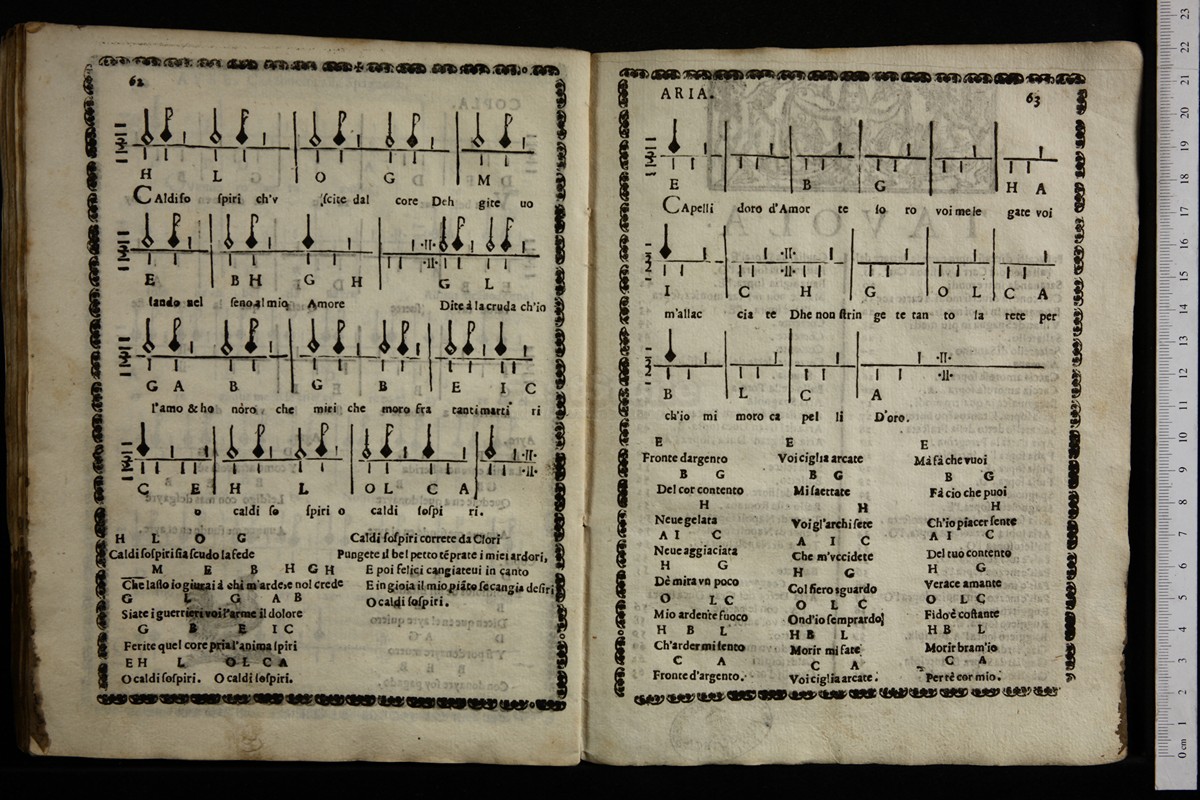 62
H L O G M
CAldi so spiri ch'v scite dal core Deh gite uo
E B H G H G L
lando nel seno al mio Amore Dite à la cruda ch'io
G A B G B E I C
l'amo & ho nòro che miri che moro fra tanti marti ri
C E H L O L C A
o caldi so spiri o caldi sospi ri.
H L O G
Caldi sospiri sia scudo la fede
M E B H G H
Che lasso io giurai à chi m'arde, e nol crede
G L G A B
Siate i guerrieri voi l'arme il dolore
G B E I C
Ferite quel core pria l'anima spiri
E H L O L C A
O caldi sospiri. O caldi sospiri.
Caldi sospiri correte da Clori
Pungete il bel petto tẽprate i miei ardori,
E poi felici cangiateui in canto
E in gioia il mio piãto se cangia desiri
O caldi sospiri.
ARIA.
63
E B G H A
CApelli doro d'Amor te so ro voi me le gate voi
I C H G O L C A
m'allac cia te Dhe non strin ge te tan to la rete per
B L C A
ch'io mi moro ca pel li D'oro.
E
Fronte dargento
B G
Del cor contento
H
Neue gelata
A I C
Neue aggiaciata
H G
Dè mira vn poco
O L C
Mio ardente fuoco
H B L
Ch'arder mi sento
C A
Fronte d'argento.
E
Voi ciglia arcate
B G
Mi saettate
H
Voi gl'archi sete
A I C
Che m'vccidete
H G
Col fiero sguardo
O L C
Ond'io semprardo
H B L
Morir mi fate
C A
Voi ciglia arcate.
E
Má fà che vuoi
B G
Fà cio che puoi
H
Ch'io piacer sente
A I C
Del tuo contento
H G
Verace amante
O L C
Fido è costante
H B L
Morir bram'io
C A
Per tè cor mio.